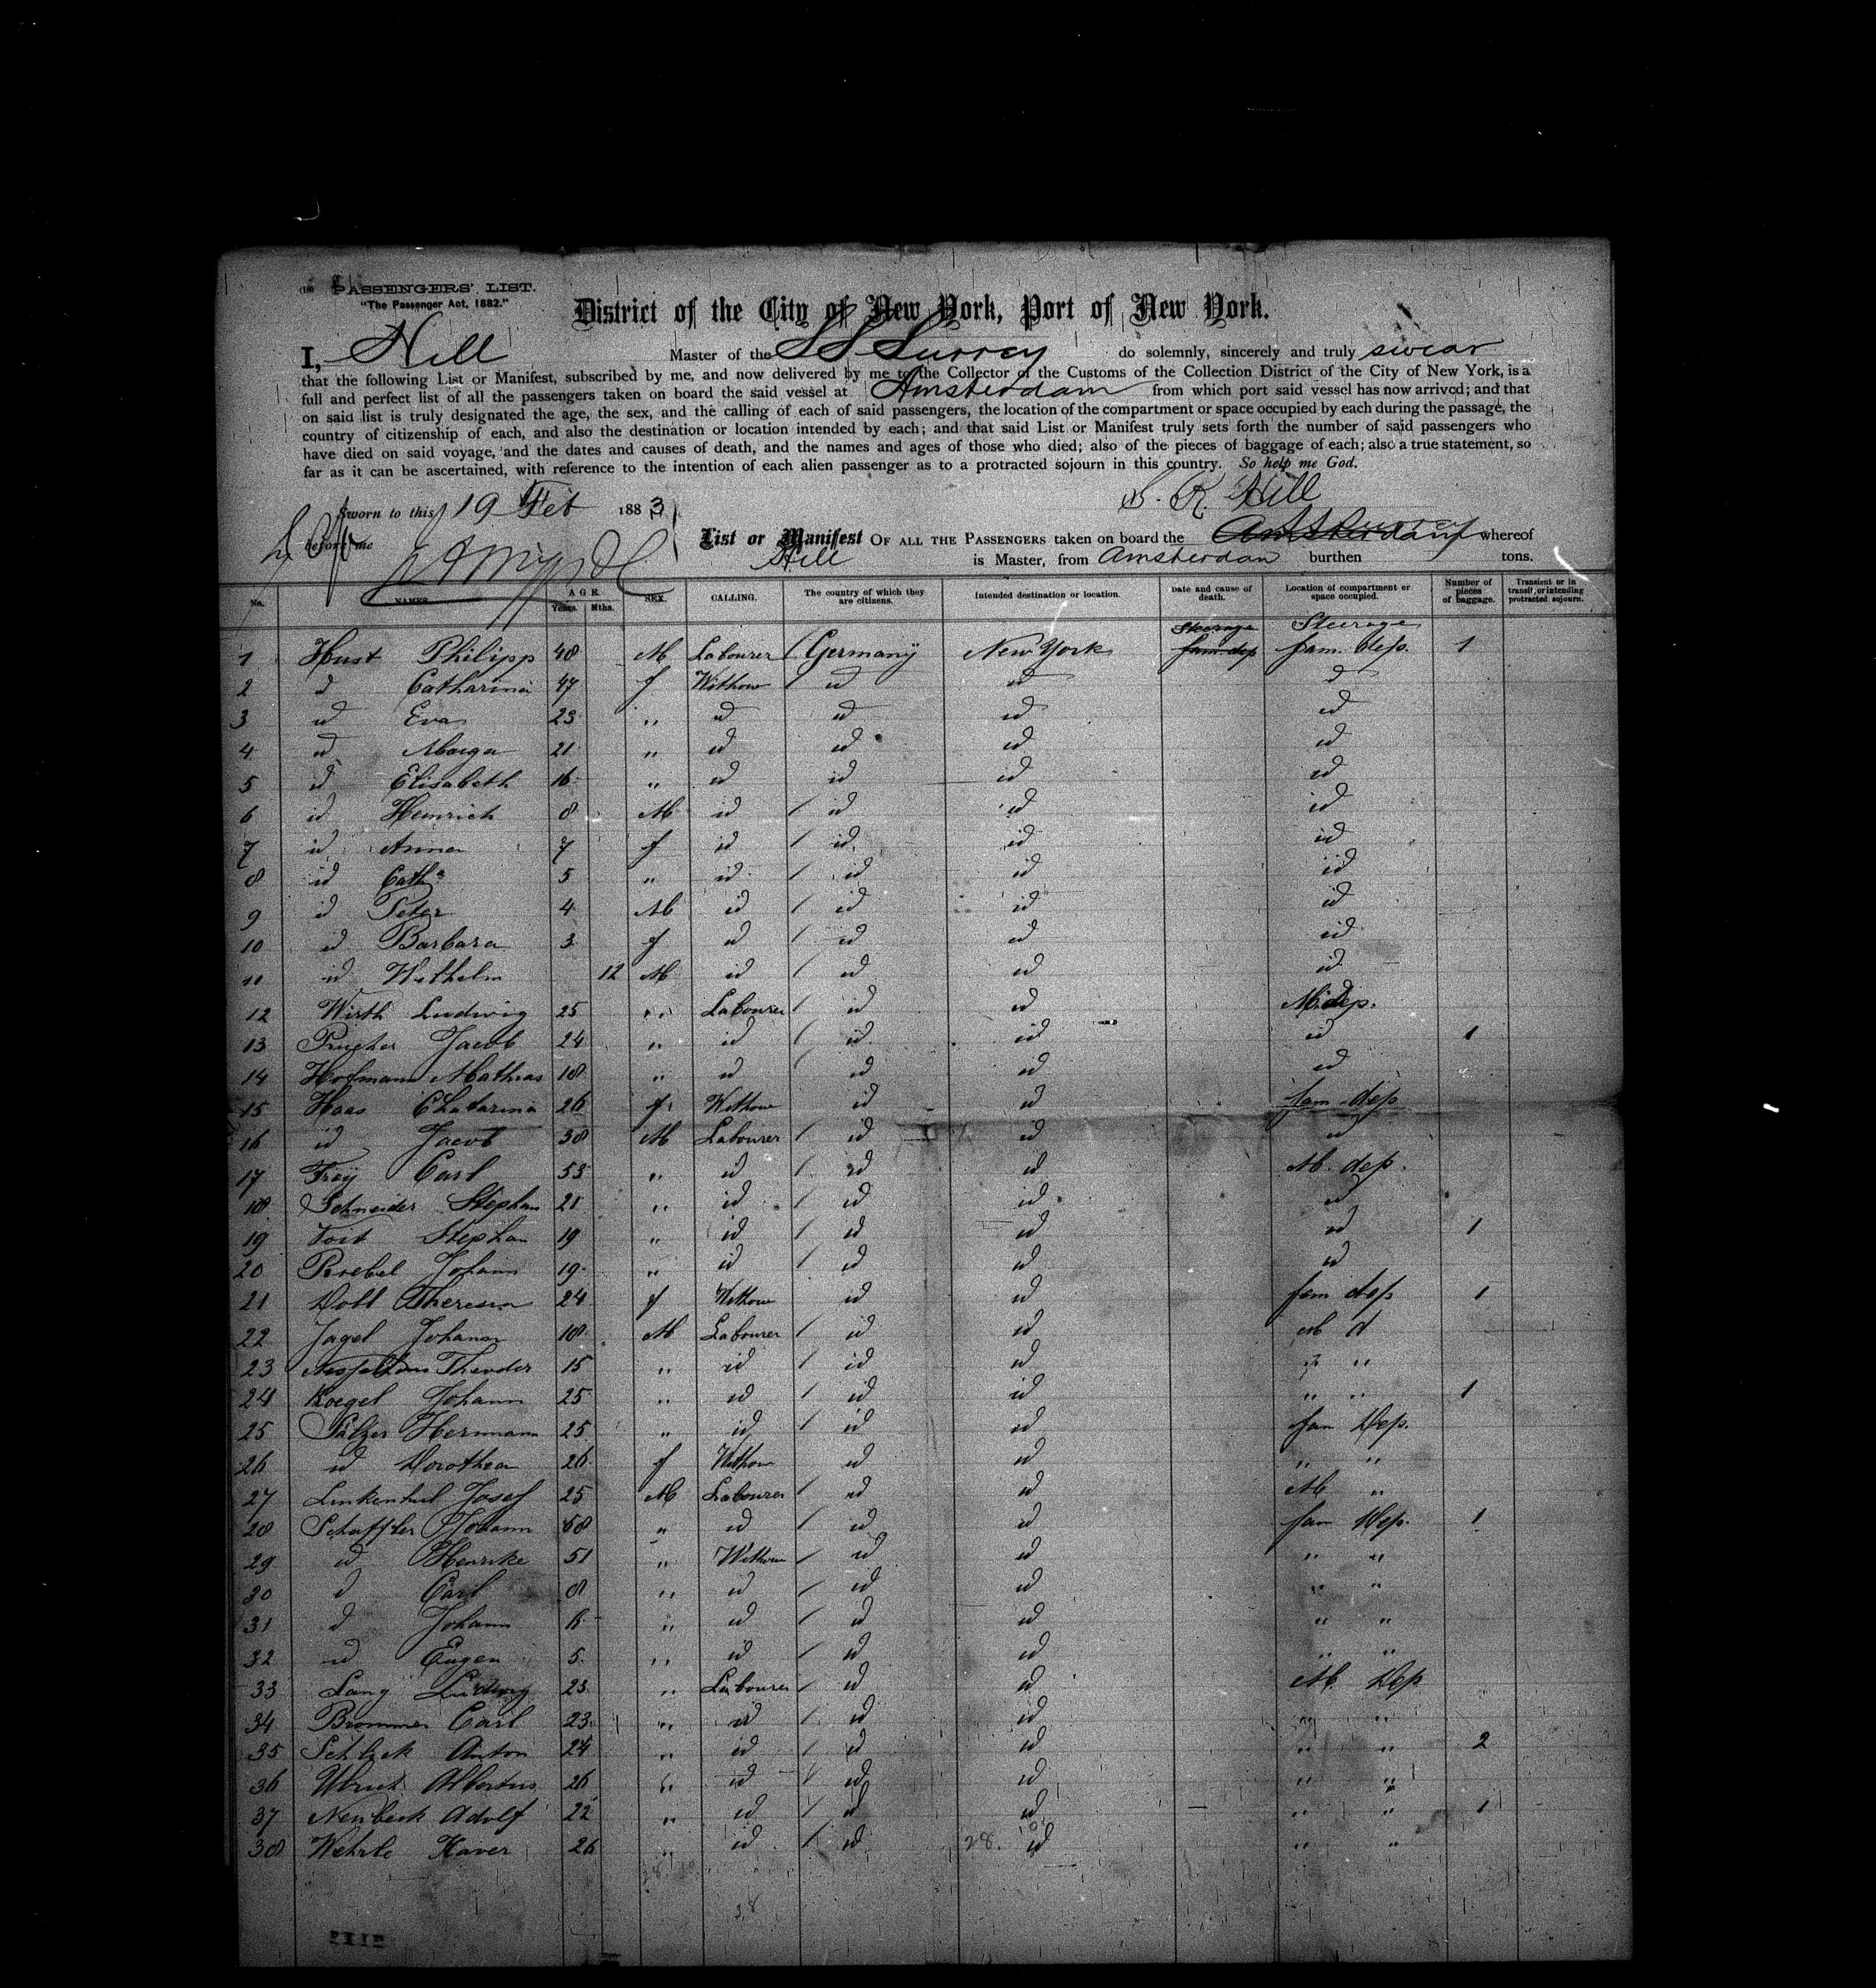 PASSENGERS' LIST.
"The Passenger Act, 1882."
District of the City of New York, Port of New York.
I, Hill Master of the SS Surrey do solemnly, sincerely and truly swear
that the following List or Manifest, subscribed by me, and now delivered by me to the Collector of the Customs of the Collection District of the City of New York, is a
full and perfect list of all the passengers taken on board the said vessel at Amsterdam from which port said vessel has now arrived; and that
on said list is truly designated the age, the sex, and the calling of each of said passengers, the location of the compartment or space occupied by each during the passage, the
country of citizenship of each, and also the destination or location intended by each; and that said List or Manifest truly sets forth the number of said passengers who
have died on said voyage, and the dates and causes of death, and the names and ages of those who died; also of the pieces of baggage of each; also a true statement, so
far as it can be ascertained, with reference to the intention of each alien passenger as to a protracted sojourn in this country. So help me God.
S. R. Hill
Sworn to this 19 Feb 1883
before me
List or Manifest OF ALL THE PASSENGERS taken on board the SS Surrey whereof
Hill is Master, from Amsterdam burthen tons.
No. NAMES. AGE. Years. Mths. SEX. CALLING. The country of which they are citizens. Intended destination or location. Date and cause of death. Location of compartment or space occupied. Number of pieces of baggage. Transient or in transit, or intending protracted sojourn.
Steerage Steerage
1 Hust Philipp 48 M Labourer / Germany New York fam. dep fam. dep. 1
2 id Catharina 47 f Withow / id id id
3 id Eva 23 " id id id id
4 id Marga 21 " id id id id
5 id Elisabeth 16 " id id id id
6 id Heinrich 8 M id / id id id
7 id Anna 7 f id / id id id
8 id Cath.a 5 " id / id id id
9 id Peter 4 M id / id id id
10 id Barbara 3 f id / id id id
11 id Wilhelm 12 M id / id id id
12 Wirth Ludwig 25 " Labourer / id id M. dep.
13 Jacob 24 " id / id id id 1
14 Hofmann Mathias 18 " id / id id id
15 Haas Chatarina 26 f Withow id id fam dep
16 id Jacob 38 M Labourer / id id id
17 Frey Carl 53 " id / id id M. dep.
18 Schneider Stephan 21 " id / id id id
19 Voit Stephan 19 " id / id id id 1
20 Johann 19 " id / id id id
21 Theresia 24 f Withow id id fam dep 1
22 Jagel Johann 18 M Labourer / id id M d
23 Theodor 15 " id / id id " "
24 Koegel Johann 25 " id / id id " " 1
25 Sälzer Hermann 25 " id / id id fam Dep.
26 id Dorothea 26 f Withow id id " "
27 Josef 25 M Labourer / id id M "
28 Schaffler Johann 58 " id / id id fam Dep. 1
29 id Henrike 51 " Withow / id id " "
30 id Carl 8 " id / id id " "
31 id Johann 6 " id / id id " "
32 id Eugen 5 " id / id id " "
33 Lang Ludwig 23 " Labourer / id id M. Dep
34 Brommer Carl 23 " id / id id " "
35 Anton 24 " id / id id " " 2
36 Albertus 26 " id / id id " "
37 Neubeck Adolf 22 " id / id id " " 1
38 Wehrle Xaver 26 " id / id 28. id " "
38